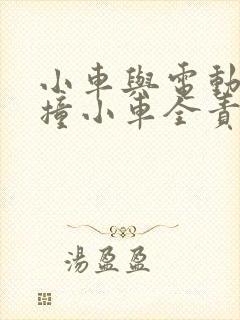 小車與電動
撞小車全責
湯盈盈